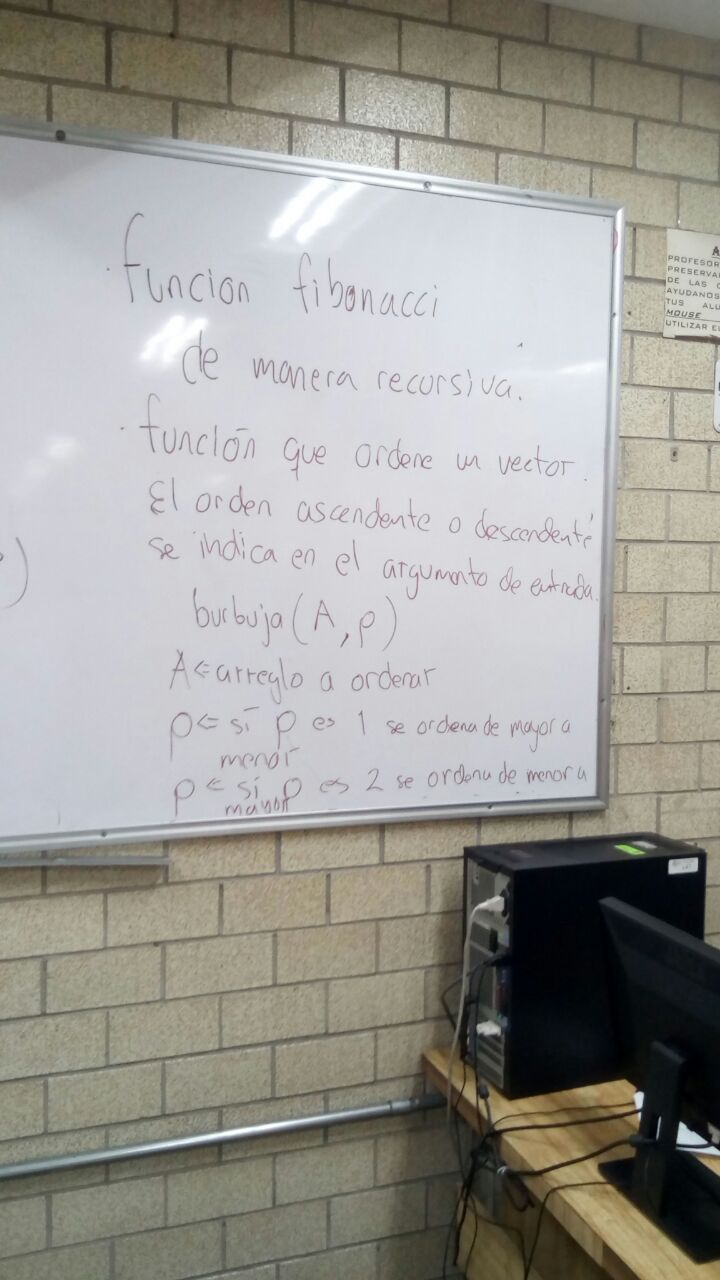 · función fibonacci
de manera recursiva.
· función que ordene un vector.
El orden ascendente o descendente
se indica en el argumento de entrada.
burbuja(A, p)
A <= arreglo a ordenar
p <= sí p es 1 se ordena de mayor a
menor
p <= sí p es 2 se ordena de menor a
mayor
PROFESOR
PRESERVA
DE LAS
AYUDANOS
TUS ALU
MOUSE
UTILIZAR EL